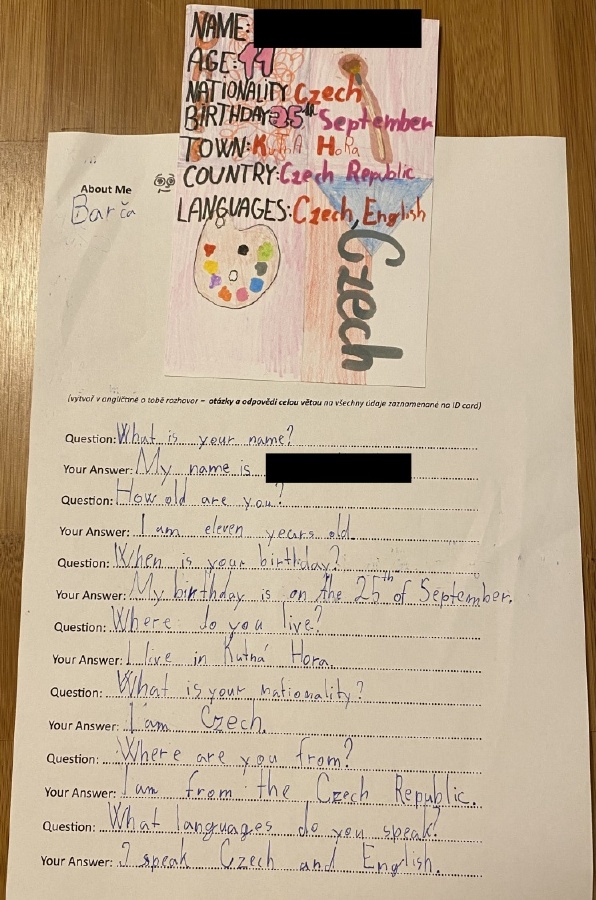 NAME:
AGE: 11
NATIONALITY Czech
BIRTHDAY 25th September
TOWN: KUTNA HoRa
COUNTRY: Czech Republic
LANGUAGES: Czech, English
Czech
About Me
Barča
(vytvoř v angličtině o tobě rozhovor – otázky a odpovědi celou větou na všechny údaje zaznamenané na ID card)
Question: What is your name?
Your Answer: My name is
Question: How old are you?
Your Answer: I am eleven years old.
Question: When is your birthday?
Your Answer: My birthday is on the 25th of September.
Question: Where do you live?
Your Answer: I live in Kutná Hora.
Question: What is your nationality?
Your Answer: I am Czech.
Question: Where are you from?
Your Answer: I am from the Czech Republic.
Question: What languages do you speak?
Your Answer: I speak Czech and English.